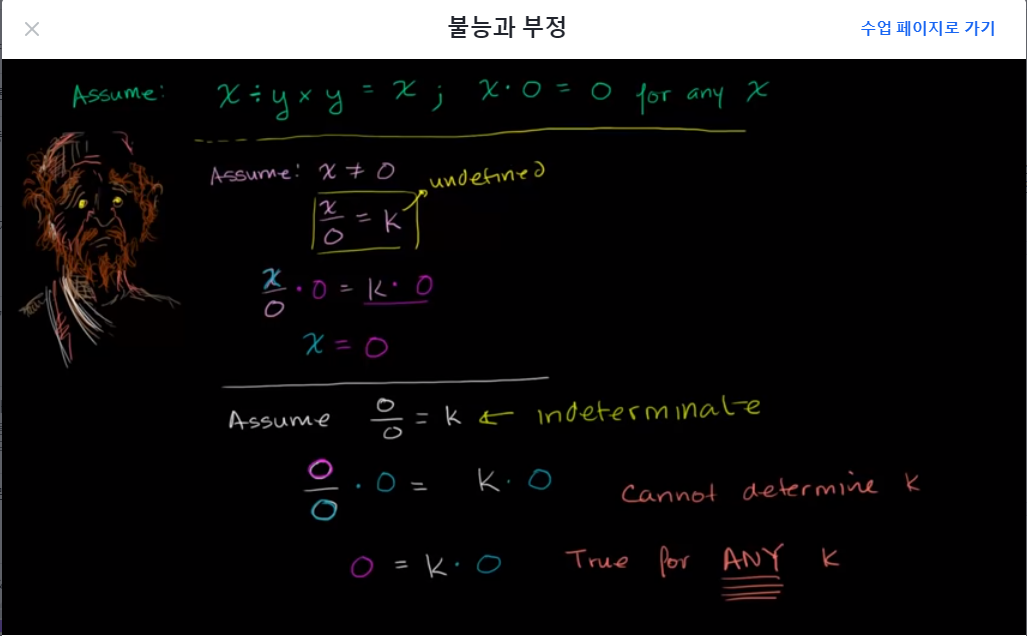 불능과 부정
수업 페이지로 가기
Assume: x ÷ y × y = x ; x · 0 = 0 for any x
Assume: x ≠ 0
undefined
x/0 = k
x/0 · 0 = k · 0
x = 0
Assume 0/0 = k ← indeterminate
0/0 · 0 = k · 0
Cannot determine k
0 = k · 0 True for ANY k